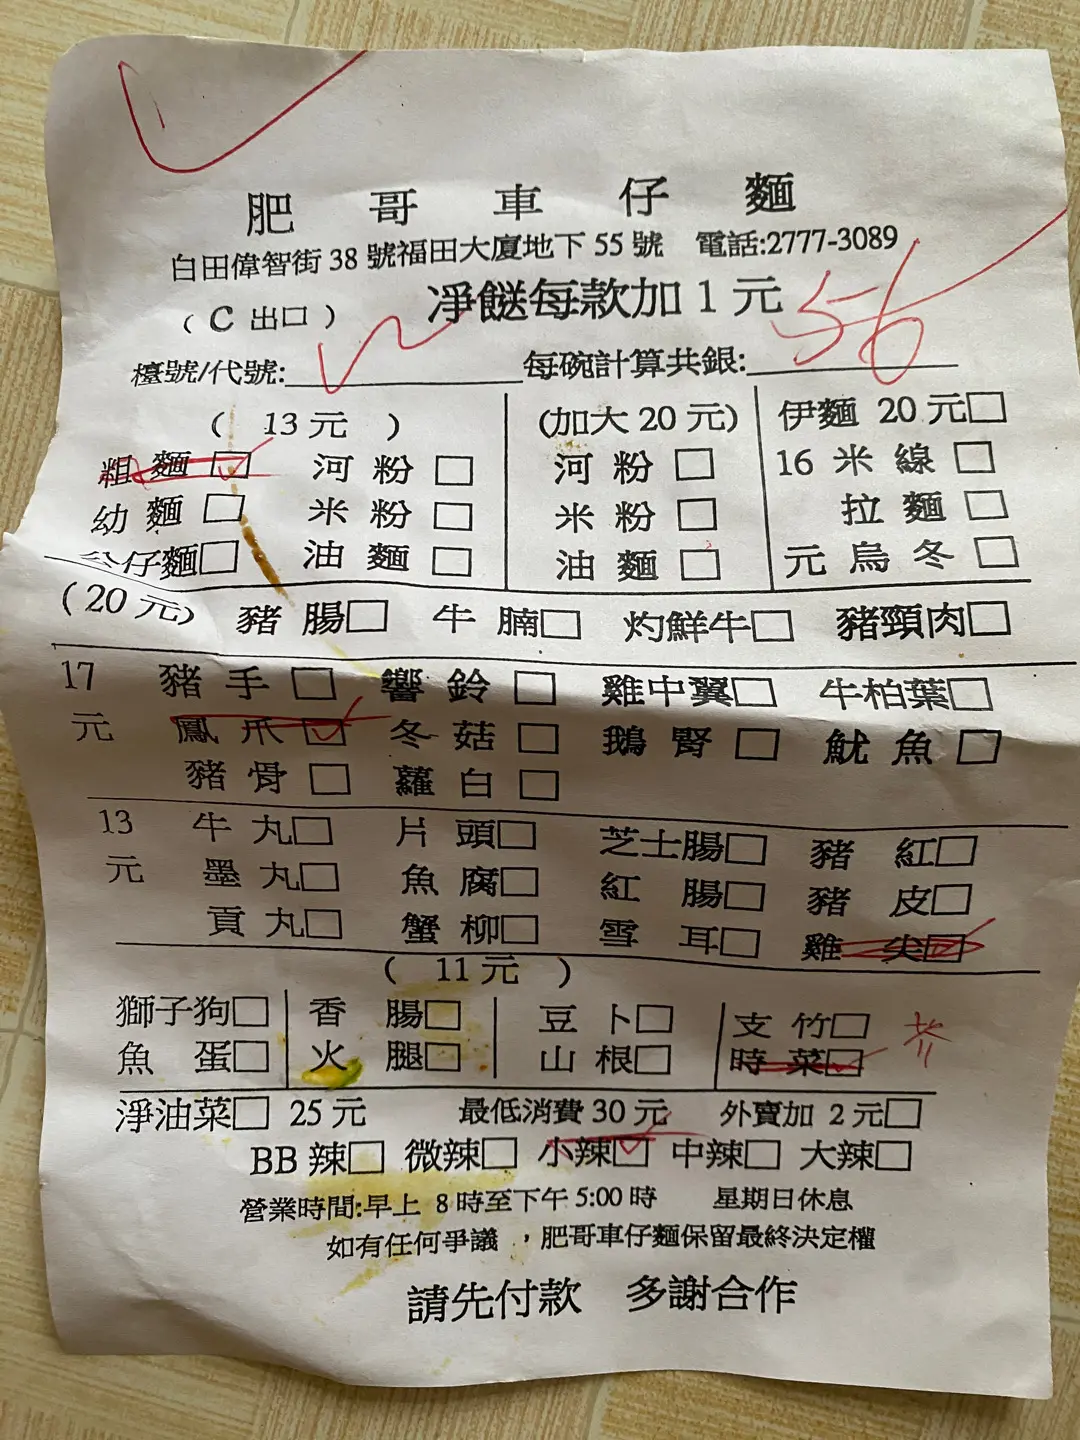 肥哥車仔麵
白田偉智街 38 號福田大廈地下 55 號 電話:2777-3089
( C 出口 ) 淨餸每款加 1 元
檯號/代號: 每碗計算共銀: 56
( 13 元 ) (加大 20 元) 伊麵 20 元
粗麵 河粉 河粉 16 米線
幼麵 米粉 米粉 拉麵
公仔麵 油麵 油麵 元 烏冬
(20 元) 豬腸 牛腩 灼鮮牛 豬頸肉
17 豬手 響鈴 雞中翼 牛柏葉
元 鳳爪 冬菇 鵝腎 魷魚
豬骨 蘿白
13 牛丸 片頭 芝士腸 豬紅
元 墨丸 魚腐 紅腸 豬皮
貢丸 蟹柳 雪耳 雞尖
( 11 元 )
獅子狗 香腸 豆卜 支竹
魚蛋 火腿 山根 時菜
淨油菜 25 元 最低消費 30 元 外賣加 2 元
BB 辣 微辣 小辣 中辣 大辣
營業時間:早上 8 時至下午 5:00 時 星期日休息
如有任何爭議 ,肥哥車仔麵保留最終決定權
請先付款 多謝合作